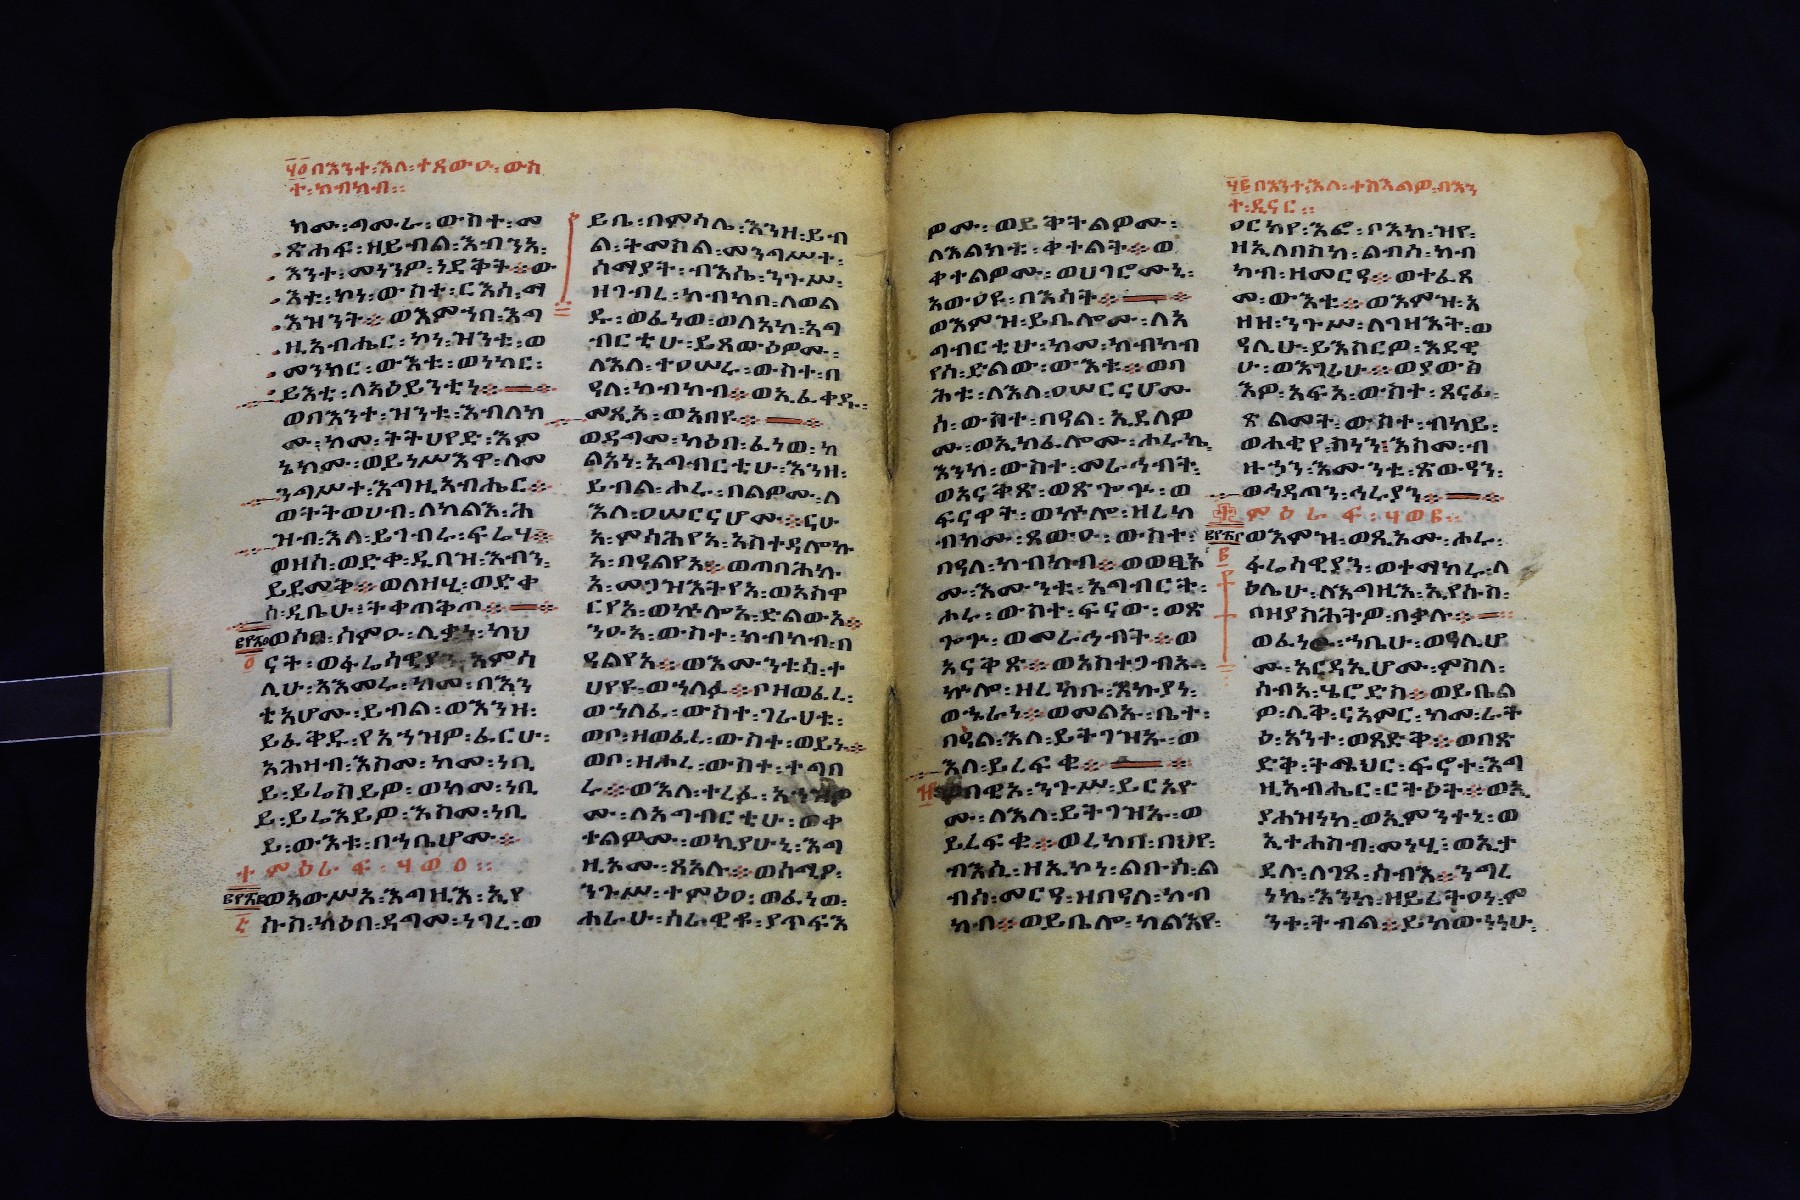 ፵፬ በእንተ፡እለ፡ተጸውዑ፡ውስ
ተ፡ከብካብ።
ከሙ፡ግሙራ፡ውስተ፡መ
ጽሐፍ፡ዘይብል፡እብንአ፡
እንተ፡መነንዎ፡ነደቅት፨ው
እቱ፡ኮነ፡ውስተ፡ርእሰ፡ማ
እዝንት፨ወእምኀበ፡እግ
ዚአብሔር፡ኮነ፡ዝንቱ፡ወ
መንክር፡ውእቱ፡ወነከር፡
ይእቲ፡ለአዕይንቲነ፨
ወበእንተ፡ዝንቱ፡እብለክ
ሙ፡ከመ፡ትትሀየድ፡እም
ኔክሙ፡ወይነሥእዋ፡ለመ
ንግሥተ፡እግዚአብሔር፨
ወትትወሀብ፡ለካልእ፡ሕ
ዝብ፡እለ፡ይገብሩ፡ፍሬሃ፨
ወዘሰ፡ወድቀ፡ዲበዝ፡እብን፡
ይደመቅ፨ወለዘሂ፡ወድቀ
ሰ፡ዲቤሁ፡ትቀጠቅጦ፨
ወሶበ፡ሰምዑ፡ሊቃነ፡ካህ
ናት፡ወፋሬሳዊያን፡አምሳ
ሊሁ፡አእመሩ፡ከመ፡በእን
ቲአሆሙ፡ይብል፡ወእንዘ፡
ይፈቅዱ፡የአኀዝዎ፡ፈርሁ፡
አሕዛብ፡እስመ፡ከመ፡ነቢ
ይ፡ይሬስይዎ፡ወከመ፡ነቢ
ይ፡ይሬእይዎ፡እስመ፡ነቢ
ይ፡ውእቱ፡በኀቤሆሙ፨
ምዕራፍ፡፵ወ፬፡
ወአውሥአ፡እግዚእ፡ኢየ
ሱስ፡ካዕበ፡ዳግመ፡ነገረ፡ወ
ይቤ፡በምሳሌ፡እንዘ፡ይብ
ል፡ትመስል፡መንግሥተ፡
ሰማያት፡ብእሴ፡ንጉሥ፡
ዘገብረ፡ከብካበ፡ለወል
ዱ፡ወፈነወ፡ወለአከ፡አግ
ብርቲሁ፡ይጸውዕዎሙ፡
ለእለ፡ተዐሥሩ፡ውስተ፡በ
ዓለ፡ከብካብ፨ወኢፈቀዱ፡
መጺአ፡ወአበዩ፨
ወዳግመ፡ካዕበ፡ፈነወ፡ካ
ልአነ፡አግብርቲሁ፡እንዘ፡
ይብል፡ሖሩ፡በልዎሙ፡ለ
እለ፡ዐሠርናሆሙ፨ናሁ
አ፡ምሳሕየአ፡አስተዳሎኩ
አ፡በዓልየአ፨ወጠባሕኩ
አ፡መጋዝእትየአ፡ወአስዋ
ርየአ፡ወኵሎአ፡ድልውአ፨
ንዑአ፡ውስተ፡ከብካብ፡በ
ዓልየአ፨ወእሙንቱሰ፡ተ
ሀየዩ፡ወኀለፉ፨ቦዘወፈረ፡
ወኀለፈ፡ውስተ፡ገራህቱ፡
ወቦ፡ዘወፈረ፡ውስተ፡ወይኑ፨
ወቦ፡ዘሖረ፡ውስተ፡ተግበ
ሩ፨ወእለ፡ተረፉ፡አኀዝዎ
ሙ፡ለአግብርቲሁ፡ወቀ
ተልዎሙ፡ወኪያሁኒ፡እግ
ዚአሙ፡ጸአሉ፨ወሰሚዖ፡
ንጉሥ፡ተምዕዐ፡ወፈነወ፡
ሐራሁ፡ሰራዊቱ፡ያጥፍእ
ዎሙ፡ወይቅትልዎሙ፡
ለእልክቱ፡ቀተልት፨ወ
ቀተልዎሙ፡ወሀገሮሙኒ፡
አውዐዩ፡በእሳት፨
ወእምዝ፡ይቤሎሙ፡ለአ
ግብርቲሁ፡ከመ፡ከብካብ
የሰ፡ድልው፡ውእቱ፨ወባ
ሕቱ፡ለእለ፡ዐሠርናሆሙ
ሰ፡ውስተ፡በዓል፡ኢደለዎ
ሙ፡ወኢከፈሎሙ፡ሖሩኬ፡
እንከ፡ውስተ፡መራኅብት፡
ወአናቅጽ፡ወጽጐጕ፡ወ
ፍናዋት፡ወኵሎ፡ዘረከ
ብክሙ፡ጸውዑ፡ውስተ፡
በዓለ፡ከብካብ፨ወወፂአ
ሙ፡እሙንቱ፡አግብርት፡
ሖሩ፡ውስተ፡ፍናው፡ወጽ
ጐጕ፡ወመራኅብት፨ወ
አናቅጽ፨ወአስተጋብኡ፡
ኵሎ፡ዘረከቡ፡እኩያነ፡
ወኄራነ፨ወመልአ፡ቤተ፡
በዓል፡እለ፡ይትገዝኡ፡ወ
እለ፡ይረፍቁ፨
በዊአ፡ንጉሥ፡ይርአዮ
ሙ፡ለእለ፡ይትገዝኡ፡ወ
ይረፍቁ፨ወረከበ፡በህየ፡
ብእሲ፡ዘኢኮነ፡ልቡስ፡ል
ብሰ፡መርዓ፡ዝበዓለ፡ከብ
ካብ፨ወይቤሎ፡ካልእየ፡
፵፭ በእንተ፡እለ፡ተስእልዎ፡በእን
ተ፡ዲናር።
ዐርክየ፡እፎ፡ቦእከ፡ዝየ፡
ዘኢለበስከ፡ልብሰ፡ከብ
ካብ፡ዘመርዓ፨ወተፈጸ
መ፡ውእቱ፨ወእምዝ፡አ
ዘዘ፡ንጉሥ፡ለገዛእት፡ወ
ዓሊሁ፡ይእስርዎ፡እደዊ
ሁ፡ወእገሪሁ፨ወያውፅ
እዎ፡አፍአ፡ውስተ፡ጸናፊ፡
ጽልመት፡ውስተ፡ብካይ፡
ወሐቂየ፡ስነን፡እስመ፡ብ
ዙኃን፡እሙንቱ፡ጽውዓን፡
ወኅዳጣን፡ኅሩያን፨
ምዕራፍ፡፵ወ፭።
ወእምዝ፡ወጺአሙ፡ሖሩ፡
ፋሬሳዊያን፡ወተማከሩ፡ላ
ዕሌሁ፡ለእግዚእ፡ኢየሱስ፡
በዘያስሕትዎ፡በቃሉ፨
ወፈነዉ፡ኀቤሁ፡ወዓሊሆ
ሙ፡አርዳኢሆሙ፡ምስለ፡
ሰብአ፡ሄሮድስ፨ወይቤል
ዎ፡ሊቅ፡ናአምር፡ከመ፡ራት
ዕ፡አንተ፡ወጻድቅ፨ወበጽ
ድቅ፡ትሜህር፡ፍኖተ፡እግ
ዚአብሔር፡ርትዕት፨ወኢ
ያሐዝነከ፡ወኢምንተኒ፡ወ
ኢተሐስብ፡መነሂ፡ወኢታ
ደሉ፡ለገጸ፡ሰብእ፨ንግረ
ነኬ፡እንከ፡ዘይረትዐነ፡ም
ንተ፡ትብል፨ይከውነነሁ፡